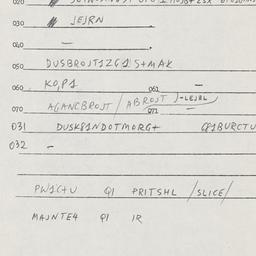 020
030 JEJRN
040 —
050 DUSBROJT1Z61 S+MAK
060 KO,P1 061 —
070 AGANCBROJT / ABROJT J-LEJBL/
071 —
031 DUSK81NDOTMORG+ C81BURCTU
032 -
PW1C+U Q1 PRITSHL /SLICE/
MAJNTE4 Q1 1R